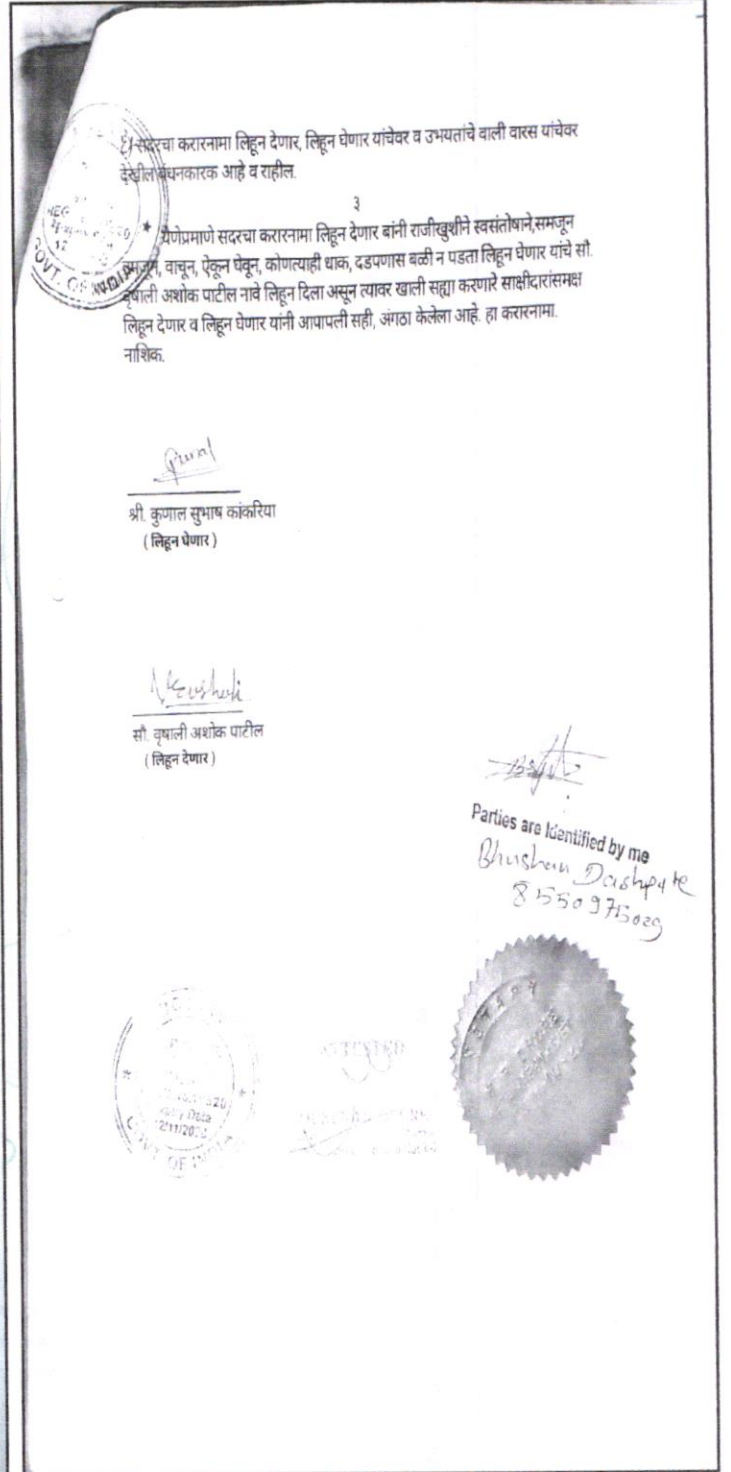 सदरचा करारनामा लिहून देणार, लिहून घेणार यांचेवर व उभयतांचे वाली वारस यांचेवर
देखील बंधनकारक आहे व राहील.
३
येणेप्रमाणे सदरचा करारनामा लिहून देणार बांनी राजीखुशीने स्वसंतोषाने,समजून
वाचून, ऐकून घेवून, कोणत्याही धाक, दडपणास बळी न पडता लिहून घेणार यांचे सौ.
वृषाली अशोक पाटील नावे लिहून दिला असून त्यावर खाली सह्या करणारे साक्षीदारांसमक्ष
लिहून देणार व लिहून घेणार यांनी आपापली सही, अंगठा केलेला आहे. हा करारनामा.
नाशिक.
श्री. कुणाल सुभाष कांकरिया
( लिहून घेणार )
सौ. वृषाली अशोक पाटील
( लिहून देणार )
Parties are Identified by me
Bhushan
8550975029
GOVT. OF INDIA